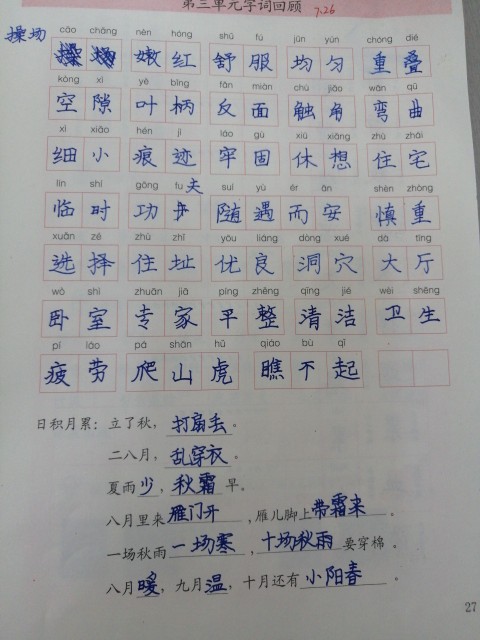 第三单元字词回顾 7.26
操场 cāo chǎng nèn hóng shū fú jūn yún chóng dié
操场 嫩红 舒服 均匀 重叠
kòng xì yè bǐng fǎn miàn chù jiǎo wān qū
空隙 叶柄 反面 触角 弯曲
xì xiǎo hén jì láo gù xiū xiǎng zhù zhái
细小 痕迹 牢固 休想 住宅
lín shí gōng fu 夫 suí yù ér ān shèn zhòng
临时 功 随遇而安 慎重
xuǎn zé zhù zhǐ yōu liáng dòng xué dà tīng
选择 住址 优良 洞穴 大厅
wò shì zhuān jiā píng zhěng qīng jié wèi shēng
卧室 专家 平整 清洁 卫生
pí láo pá shān hǔ qiáo bù qǐ
疲劳 爬山虎 瞧不起
日积月累：立了秋，打扇丢。
二八月，乱穿衣。
夏雨少，秋霜早。
八月里来雁门开，雁儿脚上带霜来。
一场秋雨一场寒，十场秋雨要穿棉。
八月暖，九月温，十月还有小阳春。
27